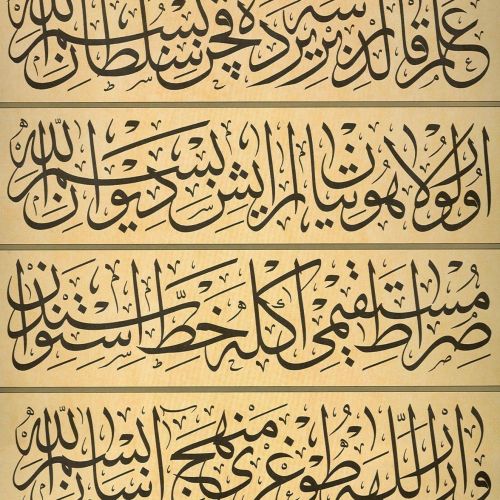 علم قالدیرسه بر یرده قچن سلطان بسم الله
اولور لاهوتیان ارایش دیوان بسم الله
صراط مستقیمی اکله خط استواسندن
وارر اللهه طوغری منهج آسان بسم الله